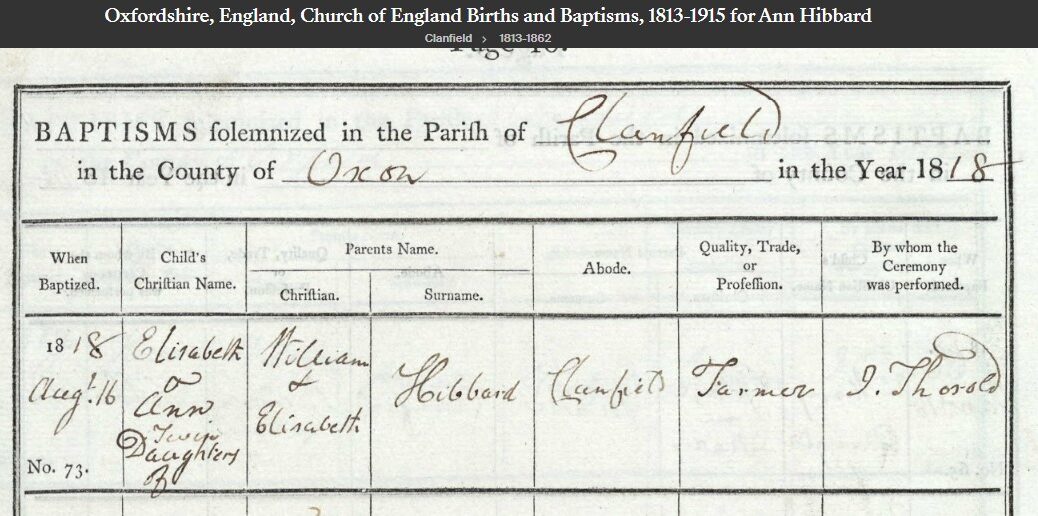 Oxfordshire, England, Church of England Births and Baptisms, 1813-1915 for Ann Hibbard
Clanfield > 1813-1862
BAPTISMS ſolemnized in the Pariſh of Clanfield
in the County of Oxon in the Year 1818
When Baptized.
Child's Chriſtian Name.
Parents Name.
Chriſtian.
Surname.
Abode.
Quality, Trade, or Profeſſion.
By whom the Ceremony was performed.
1818
Augt. 16
No. 73.
Elisabeth
&
Ann
Twin
Daughters
of
William
&
Elisabeth
Hibbard
Clanfield
Farmer
J. Thorold